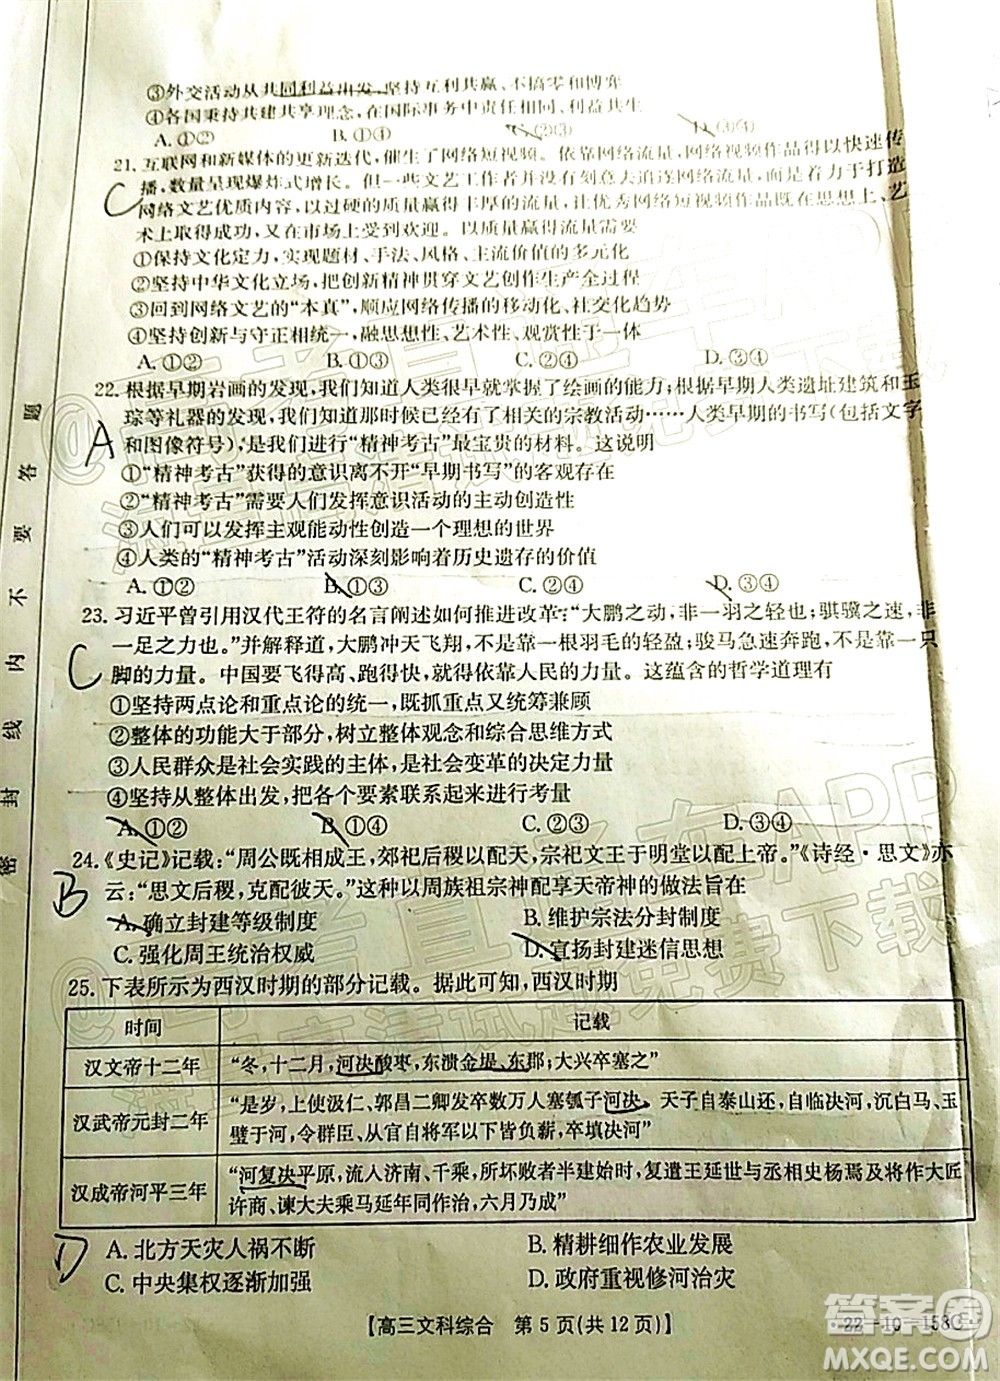 ③外交活动从共同利益出发,坚持互利共赢、不搞零和博弈
④各国秉持共建共享理念,在国际事务中责任共担、利益共生
A. ①② B. ①④ C. ②③ D. ③④
21. 互联网和新媒体的更新迭代,催生了网络短视频。依靠网络流量,网络视频作品得以快速传
播,数量呈现爆炸式增长。但一些文艺工作者并没有刻意去追逐网络流量,而是着力于打造
网络文艺优质内容,以过硬的质量赢得丰厚的流量,让优秀网络短视频作品既在思想上、艺
术上取得成功,又在市场上受到欢迎。以质量赢得流量需要
①保持文化定力,实现题材、手法、风格、主流价值的多元化
②坚持中华文化立场,把创新精神贯穿文艺创作生产全过程
③回到网络文艺的“本真”,顺应网络传播的移动化、社交化趋势
④坚持创新与守正相统一,融思想性、艺术性、观赏性于一体
A. ①② B. ①③ C. ②④ D. ③④
C
22. 根据早期岩画的发现,我们知道人类很早就掌握了绘画的能力;根据早期人类遗址建筑和玉
琮等礼器的发现,我们知道那时候已经有了相关的宗教活动……人类早期的书写(包括文字
和图像符号),是我们进行“精神考古”最宝贵的材料。这说明
①“精神考古”获得的意识离不开“早期书写”的客观存在
②“精神考古”需要人们发挥意识活动的主动创造性
③人们可以发挥主观能动性创造一个理想的世界
④人类的“精神考古”活动深刻影响着历史遗存的价值
A. ①② B. ①③ C. ②④ D. ③④
A
23. 习近平曾引用汉代王符的名言阐述如何推进改革:“大鹏之动,非一羽之轻也;骐骥之速,非
一足之力也。”并解释道,大鹏冲天飞翔,不是靠一根羽毛的轻盈;骏马急速奔跑,不是靠一只
脚的力量。中国要飞得高、跑得快,就得依靠人民的力量。这蕴含的哲学道理有
①坚持两点论和重点论的统一,既抓重点又统筹兼顾
②整体的功能大于部分,树立整体观念和综合思维方式
③人民群众是社会实践的主体,是社会变革的决定力量
④坚持从整体出发,在整体与部分的联系中进行考量
A. ①② B. ①④ C. ②③ D. ③④
C
24. 《史记》记载:“周公既相成王,郊祀后稷以配天,宗祀文王于明堂以配上帝。”《诗经·思文》亦
云:“思文后稷,克配彼天。”这种以周族祖宗神配享天帝神的做法旨在
A. 确立封建等级制度 B. 维护宗法分封制度
C. 强化周王统治权威 D. 宣扬封建迷信思想
B
25. 下表所示为西汉时期的部分记载。据此可知,西汉时期
时间 记载
汉文帝十二年 “冬,十二月,河决酸枣,东溃金堤、东郡;大兴卒塞之”
汉武帝元封二年 “是岁,上使汲仁、郭昌二卿发卒数万人塞瓠子河决。天子自泰山还,自临决河,沉白马、玉
璧于河,令群臣、从官自将军以下皆负薪,卒填决河”
汉成帝河平三年 “河复决平原,流入济南、千乘,所坏败者半建始时,复遣王延世与丞相史杨焉及将作大匠
许商、谏大夫乘马延年同作治,六月乃成”
A. 北方天灾人祸不断 B. 精耕细作农业发展
C. 中央集权逐渐加强 D. 政府重视修河治灾
D
【高三文科综合 第 5 页(共 12 页)】 ·22-10-158C·
密 封 线 内 不 要 答 题
答案圈
MXQE.COM